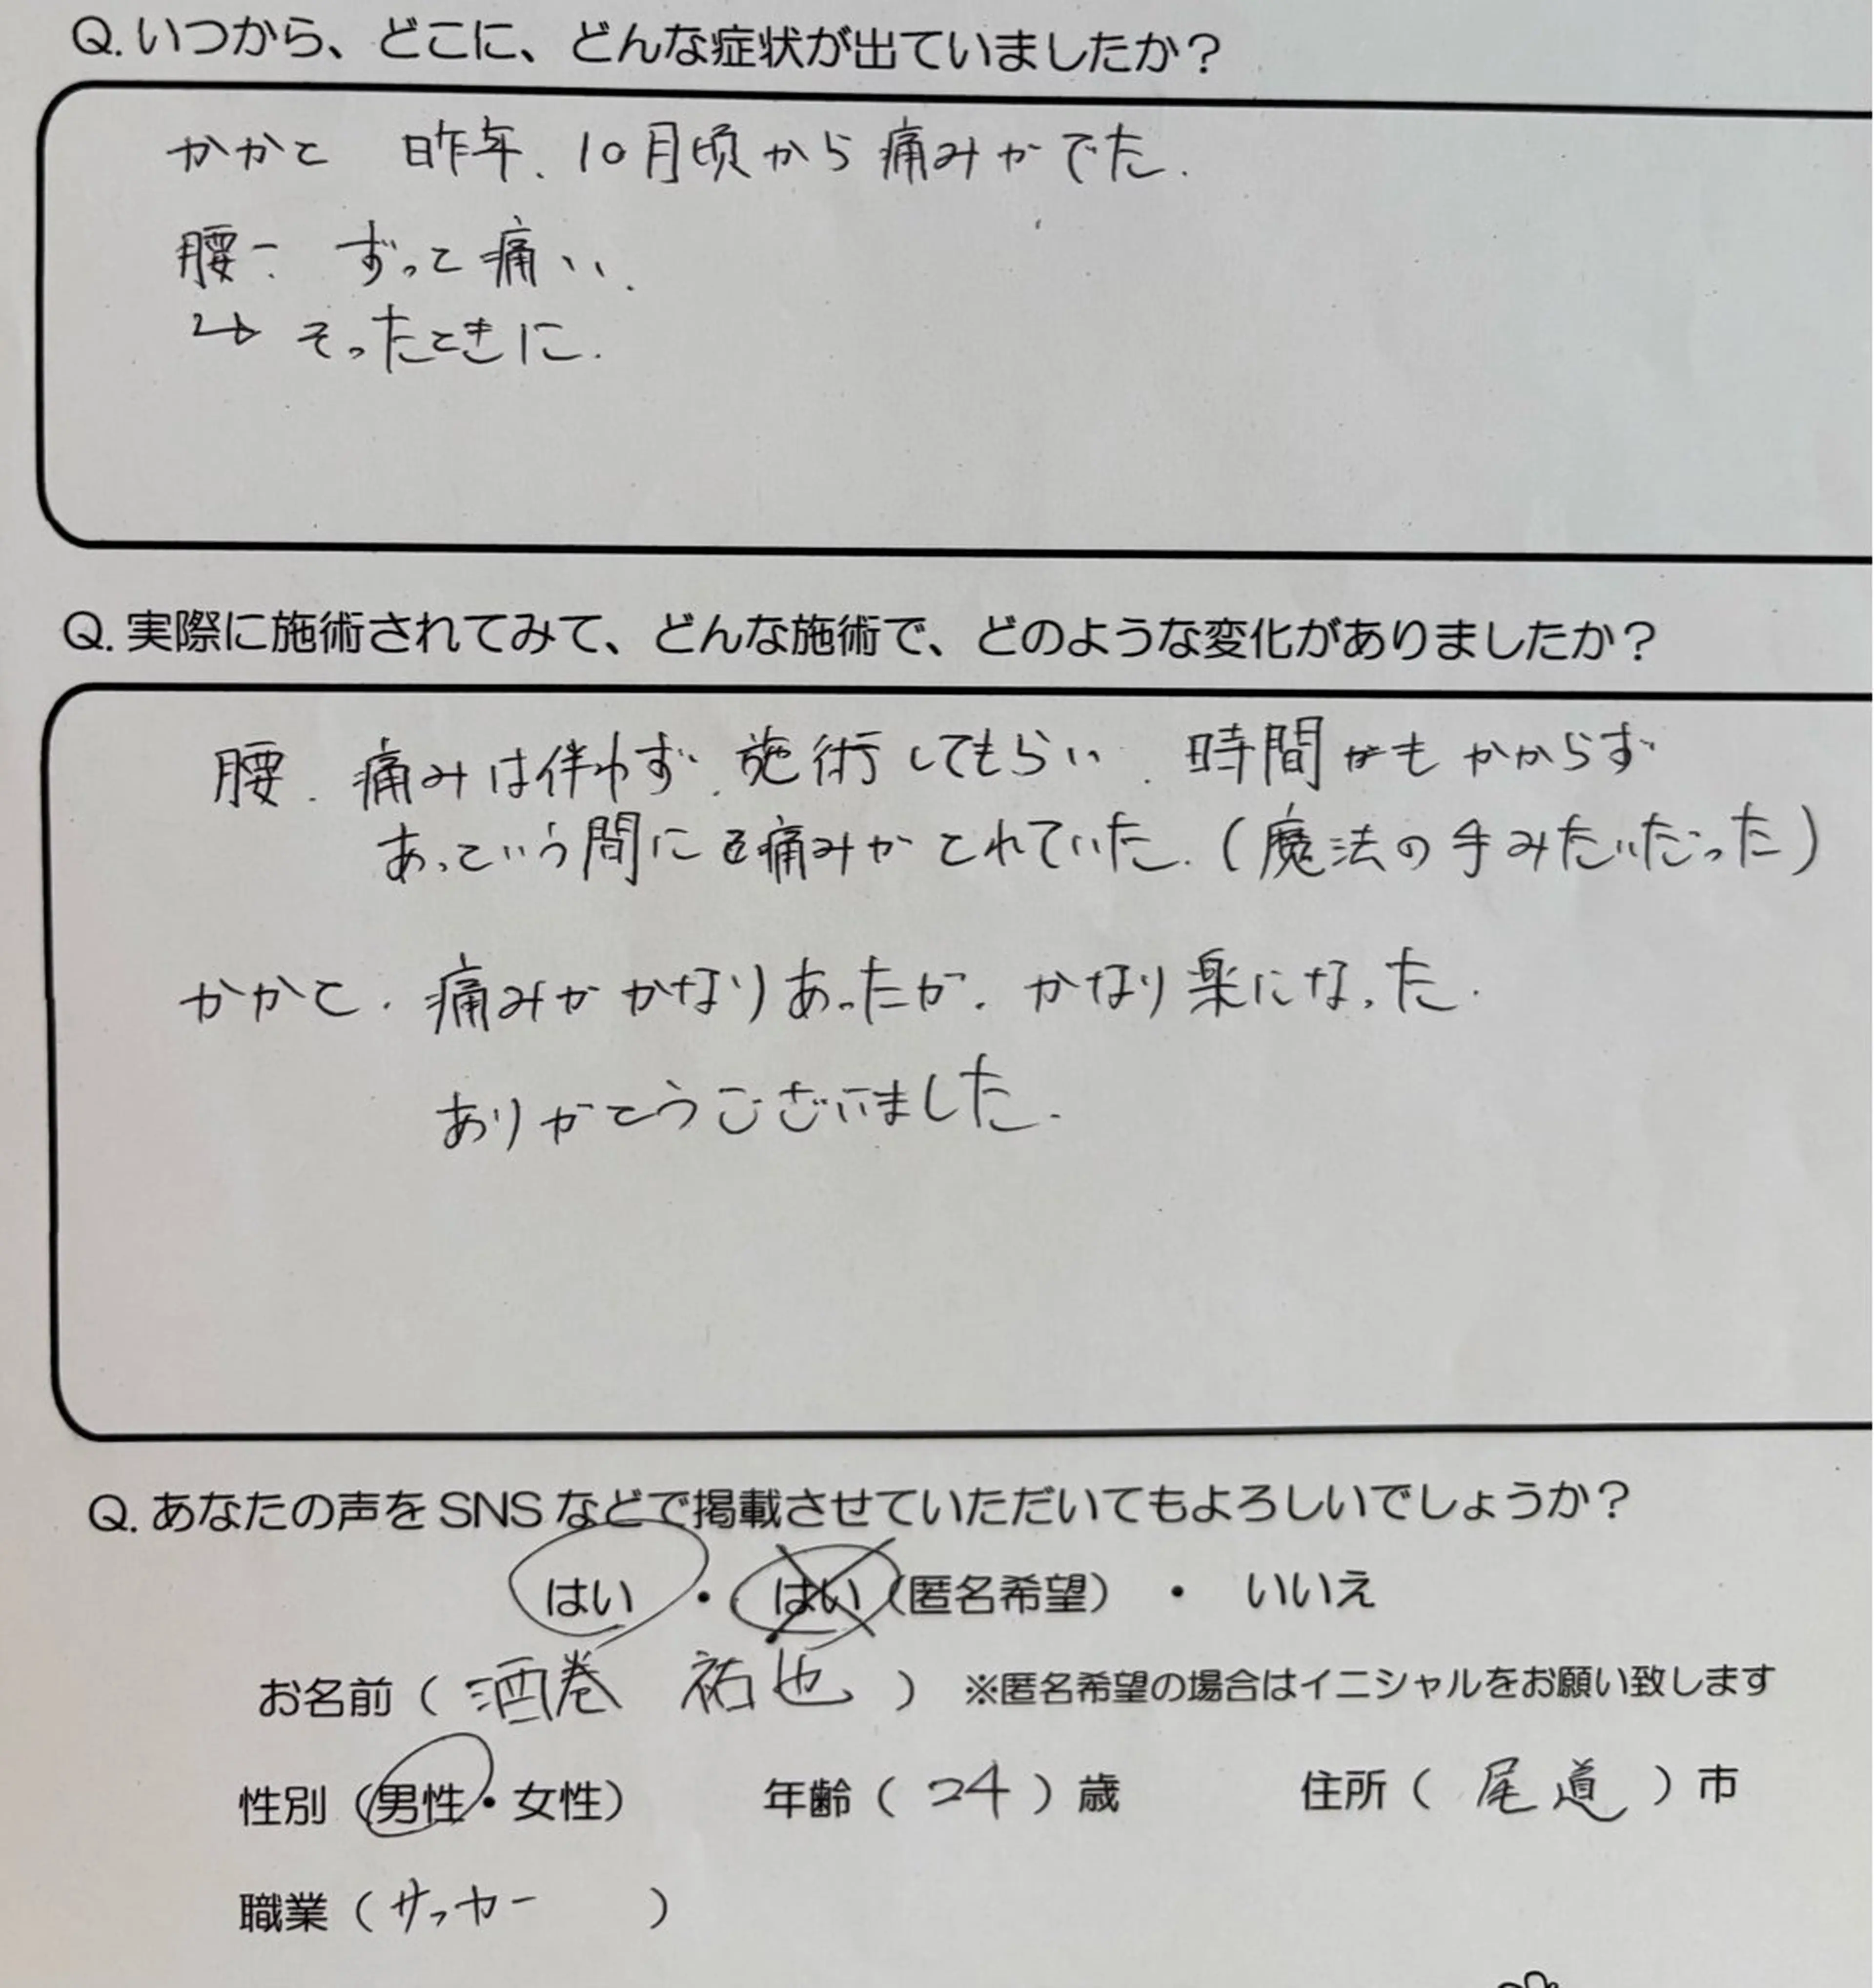 Q. いつから、どこに、どんな症状が出ていましたか？
かかと 昨年、10月頃から痛みがでた.
腰- ずっと痛い.
↳ そったときに.
Q. 実際に施術されてみて、どんな施術で、どのような変化がありましたか？
腰. 痛みは伴わず、施術してもらい、時間もかからず
あっという間に痛みがとれていた.（魔法の手みたいだった）
かかと. 痛みがかなりあったが、かなり楽になった.
ありがとうございました.
Q. あなたの声をSNSなどで掲載させていただいてもよろしいでしょうか？
はい ・ はい（匿名希望） ・ いいえ
お名前（ 酒巻 祐也 ） ※匿名希望の場合はイニシャルをお願い致します
性別（男性・女性） 年齢（ 24 ）歳 住所（ 尾道 ）市
職業（サッカー ）